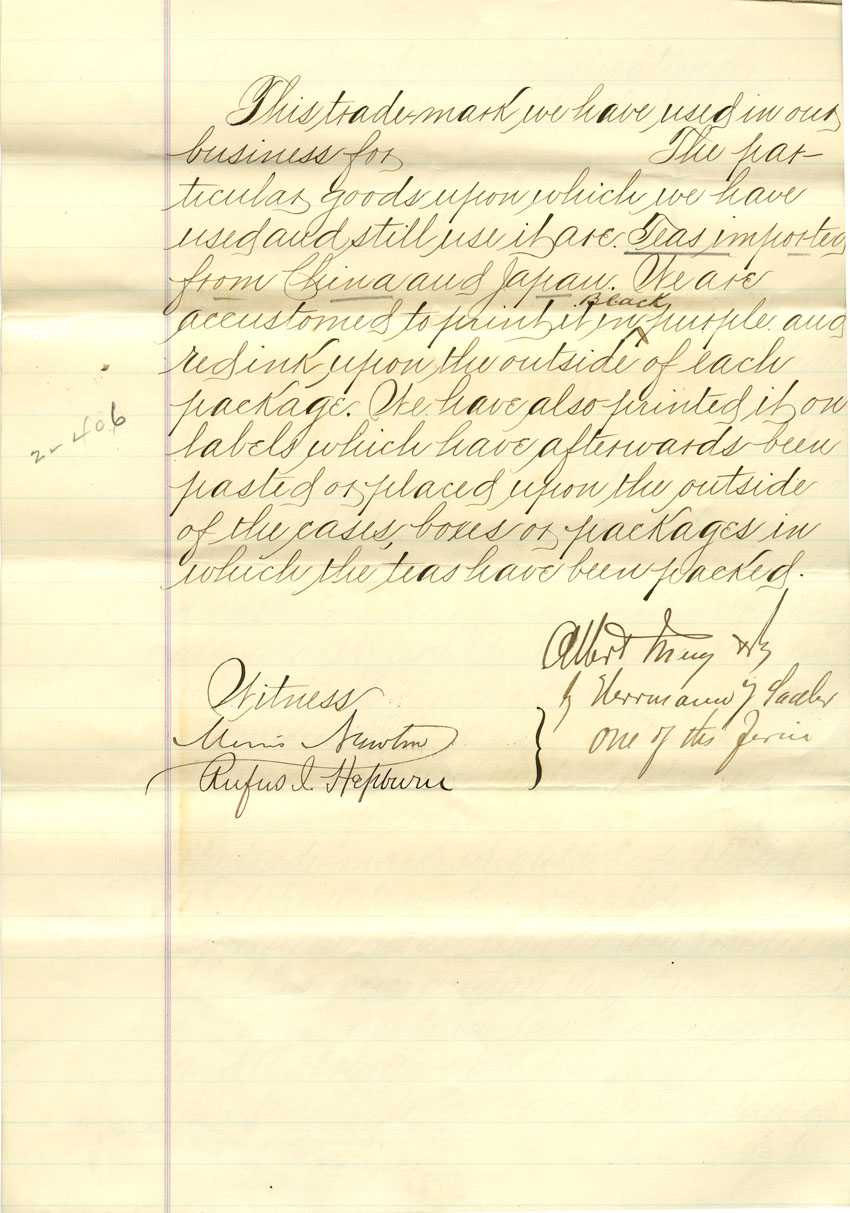 This trade-mark we have used in our
business for The par-
ticular goods upon which we have
used and still use it are. Teas imported
from China and Japan. We are
Black
accustomed to print it in purple and
red ink upon the outside of each
package. We have also printed it on
2-406
labels which have afterwards been
pasted or placed upon the outside
of the cases, boxes or packages in
which the teas have been packed.
Albert
Witness
by Herrmann
Newton
one of the Firm
Rufus I Hepburn